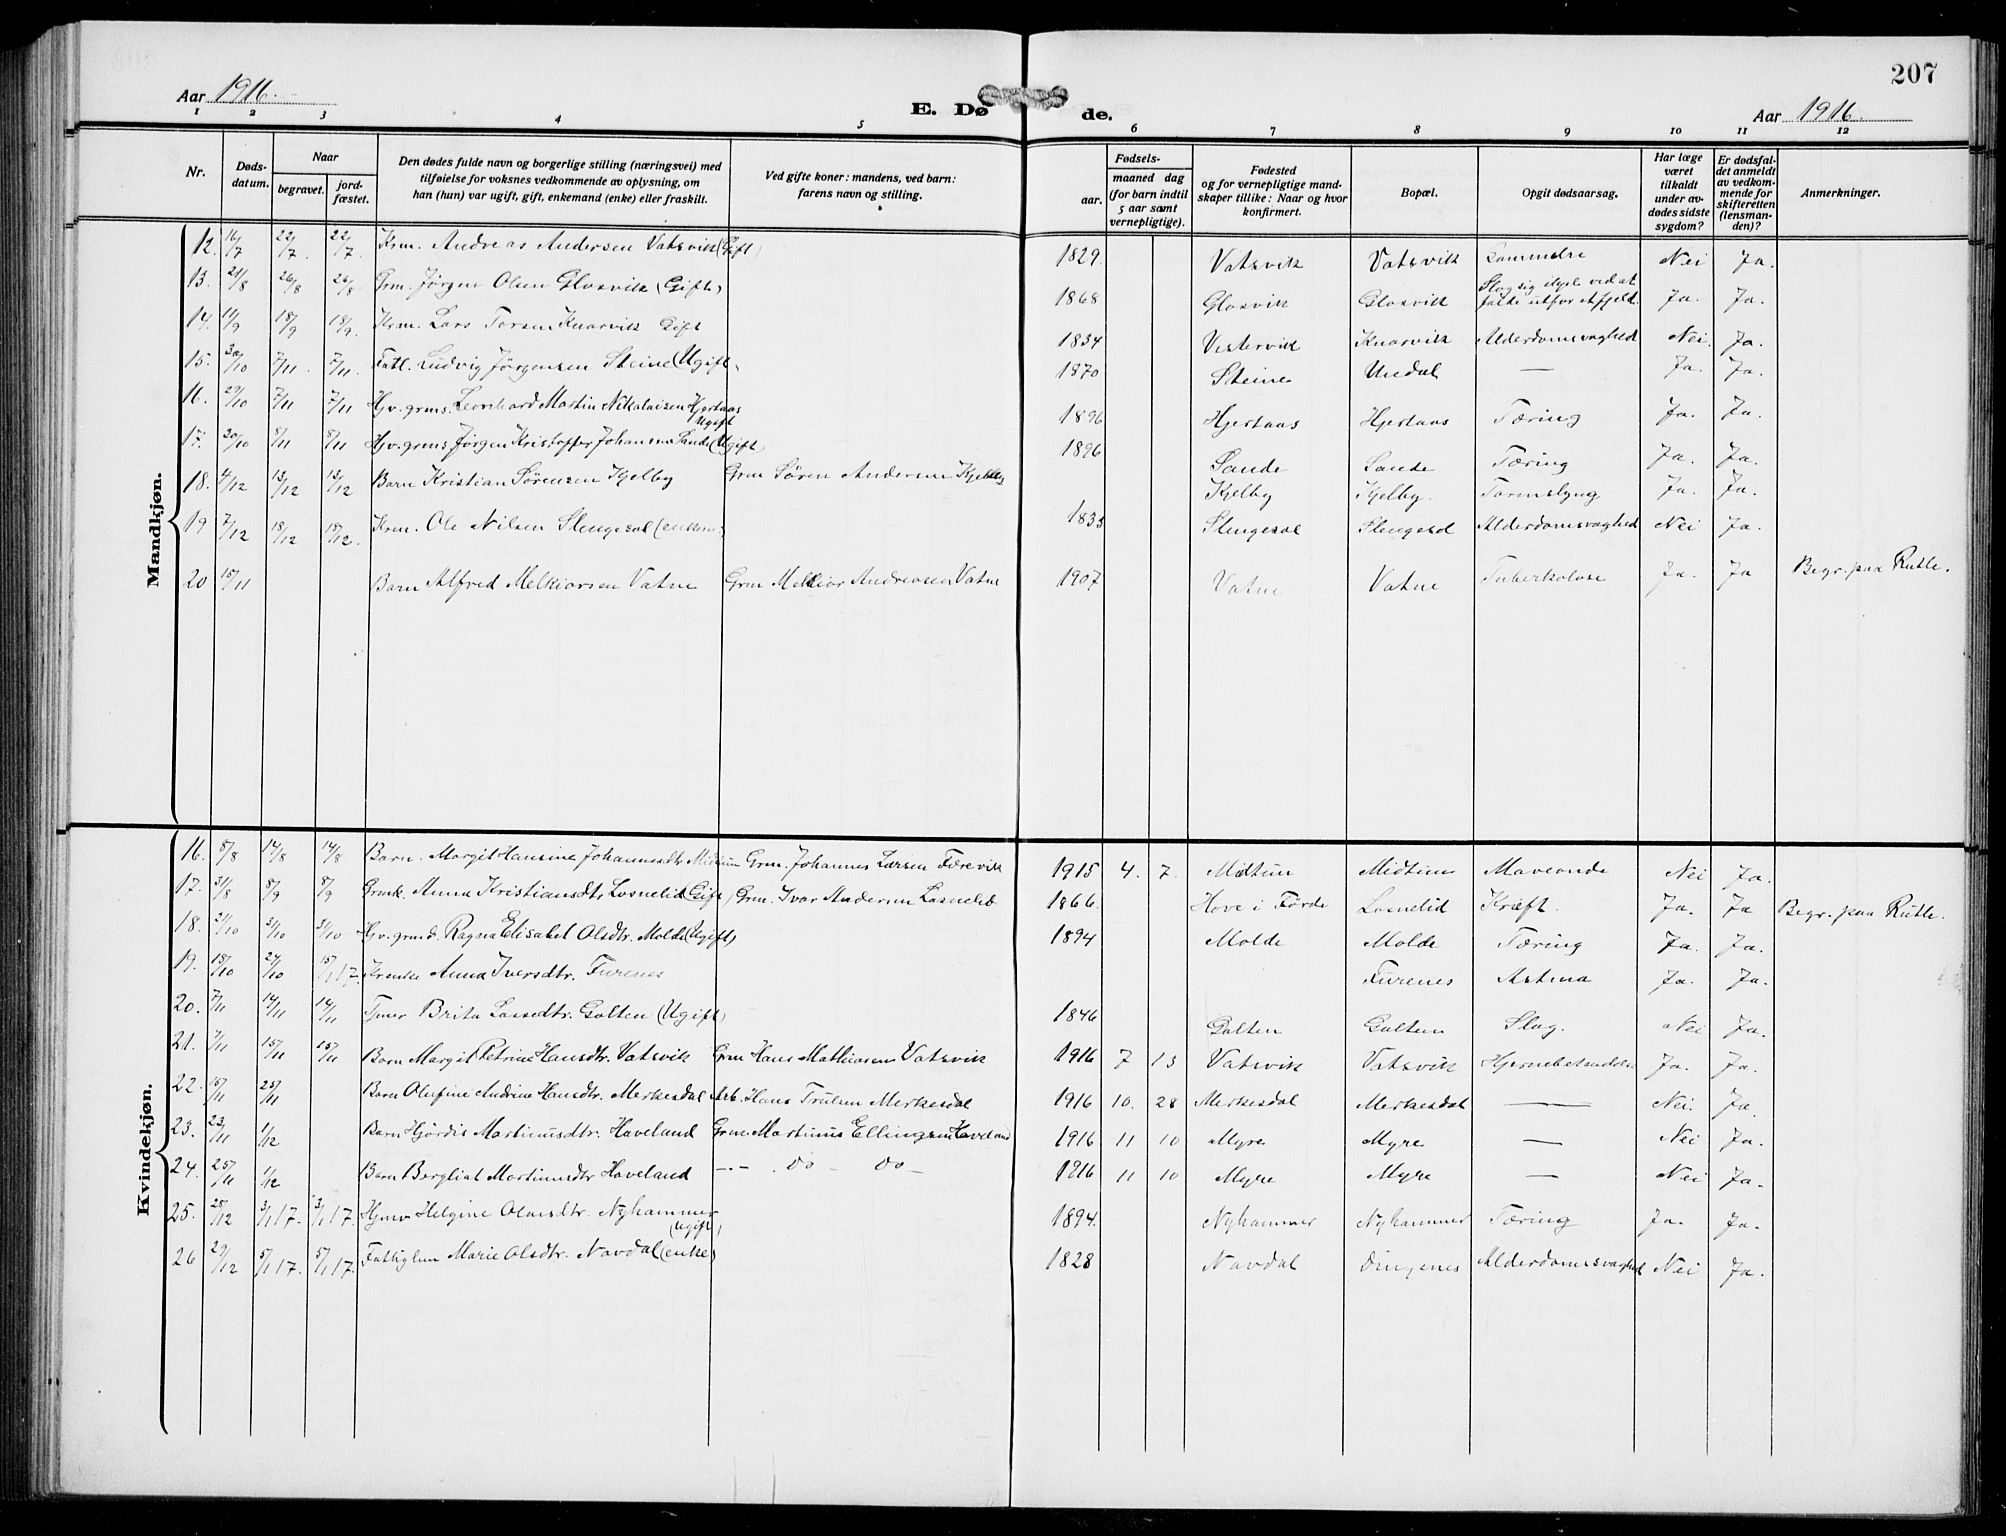 207
Aar 1916.
E. Døde.
Aar 1916.
1 2 3 4 5 6 7 8 9 10 11 12
Nr.
Døds-datum.
Naar
begravet.
jord-fæstet.
Den dødes fulde navn og borgerlige stilling (næringsvei) med
tilføielse for voksnes vedkommende av oplysning, om
han (hun) var ugift, gift, enkemand (enke) eller fraskilt.
Ved gifte koner: mandens, ved barn:
farens navn og stilling.
Fødsels-
aar.
maaned dag
(for barn indtil
5 aar samt
vernepligtige).
Fødested
og for vernepligtige mand-
skaper tillike: Naar og hvor
konfirmert.
Bopæl.
Opgit dødsaarsag.
Har læge
været
tilkaldt
under av-
dødes sidste
sygdom?
Er dødsfal-
det anmeldt
av vedkom-
mende for
skifteretten
(lensman-
den)?
Anmerkninger.
Mandkjøn.
12. 16/7 22/7. 22/7. Krm. Andreas Andersen Vatsvik (Gift) 1829. Vatsvik Vatsvik Nei Ja.
13. 21/8 26/8 26/8 Grm. Jörgen Olsen Glosvik (Gift) 1868 Glosvik Glosvik Slog sig ihjel ved at falde utfor et fjeld. Ja. Ja.
14. 11/9 18/9 18/9. Krm. Lars Torsen Knarvik Gift 1834 Vestervik Knarvik Alderdomsvaghed Nei. Ja.
15. 30/10 7/11. 7/11. Fatl. Ludvig Jörgensen Steine (Ugift) 1870 Steine Undal — Ja. Ja.
16. 29/10 7/11 7/11 Hjv. grms. Leonhard Martin Nikolaisen Hjertaas Ugift 1896 Hjertaas Hjertaas Tæring Ja. Ja.
17. 30/10 8/11 8/11 Hjv. grms Jörgen Kristoffer Johansen Sande (Ugift) 1896 Sande Sande Tæring Ja. Ja.
18. 4/12 13/12 13/12 Barn Kristian Sörensen Kjelby Grm Sören Andersen Kjelby Kjelby Kjelby. Tarmslyng Ja. Ja.
19 7/12 18/12 18/12. Krm. Ole Nilsen Slengesol (enkem.) 1835 Slengesol Slengesol Alderdomsvaghed Nei Ja.
20 15/11 Barn Alfred Melkiorsen Vatne Grm Melkior Andreasen Vatne 1907 Vatne Vatne Tuberkolose Ja. Ja Begr. paa Rutle.
Kvindekjøn.
16. 8/8 14/8 14/8 Barn. Margit Hansine Johannesdtr Midtun Grm. Johannes Larsen Færevik 1915 4. 7. Midtun Midtun Maveonde Nei Ja.
17. 31/8 8/9 8/9 Grmk Anna Kristiansdtr Losnelid (Gift) Grm. Ivar Andersen Losnelid 1866. Hove i Förde Losnelid Kræft. Ja. Ja Begr. paa Rutle.
18. 21/10 31/10 31/10 Hjv. grmd. Ragna Elisabet Olsdtr. Molde (Ugift) 1894 Molde Molde Tæring Ja. Ja.
19. 18/10 24/10 15/1 17. Krenke Anna Iversdtr. Furenes Furenes Astma Ja. Ja.
20. 7/11 14/11 14/11 Tjener Brita Lassedtr. Golten (Ugift) 1846 Golten Golten Slag. Nei Ja.
21. 7/11 15/11 15/11 Barn Margit Petrine Hansdtr. Vatsvik Grm Hans Mathiasen Vatsvik 1916 7 13 Vatsvik Vatsvik Ja. Ja.
22. 15/11 25/11 Barn Olufine Andrine Hansdtr. Merkesdal Arb. Hans Trulsen Merkesdal 1916 10. 28 Merkesdal Merkesdal — Nei. Ja.
23. 23/11 1/12 Barn Hjördis Martinusdtr. Haveland Grm Martinus Ellingsen Haveland 1916 11 10 Myre Myre — Nei Ja.
24. 25/11 1/12 Barn Bergliot Martinusdtr Haveland —.— . do — do — 1916 11 10 Myre Myre — Nei Ja.
25. 25/12 3/1 17. 3/1 17. Hjmv Helgine Olesdtr. Nyhammer (Ugift) 1894. Nyhammer Nyhammer Tæring Ja. Ja.
26 29/12 5/1 17. 5/1 17. Fattiglem Marie Olsdtr. Navdal (enke) 1828 Navdal Dingenes Alderdomssvaghed Nei Ja.